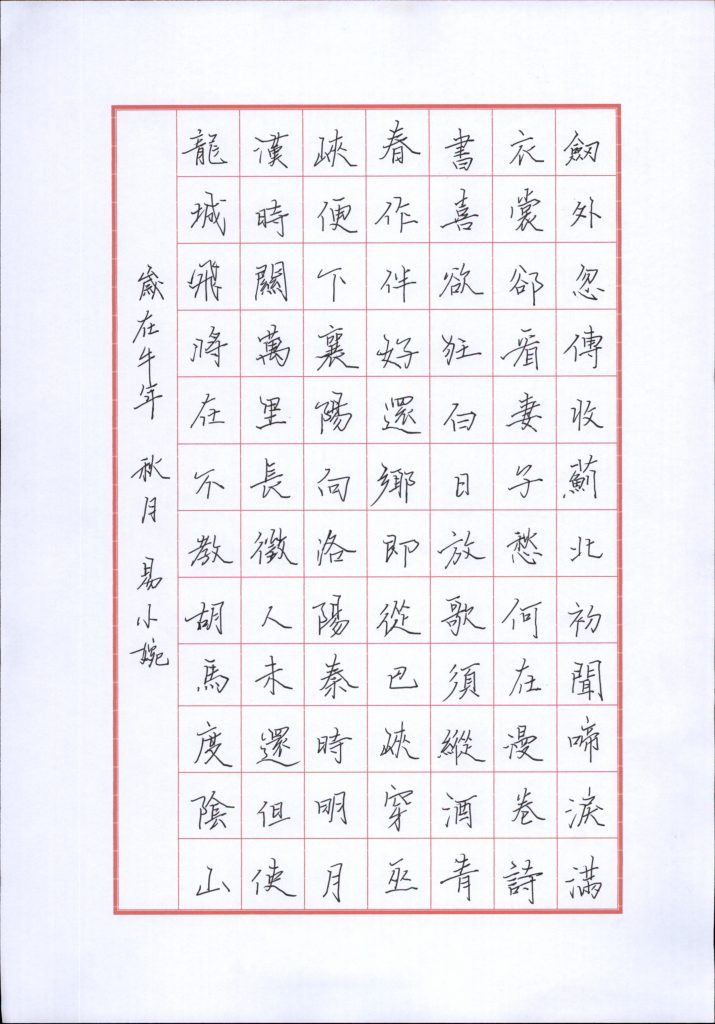 劒外忽傳收薊北初聞啼淚滿
衣裳卻看妻子愁何在漫卷詩
書喜欲狂白日放歌須縱酒青
春作伴好還鄉即從巴峽穿巫
峽便下襄陽向洛陽秦時明月
漢時關萬里長徵人未還但使
龍城飛將在不教胡馬度陰山
歲在牛年 秋月 易小婉